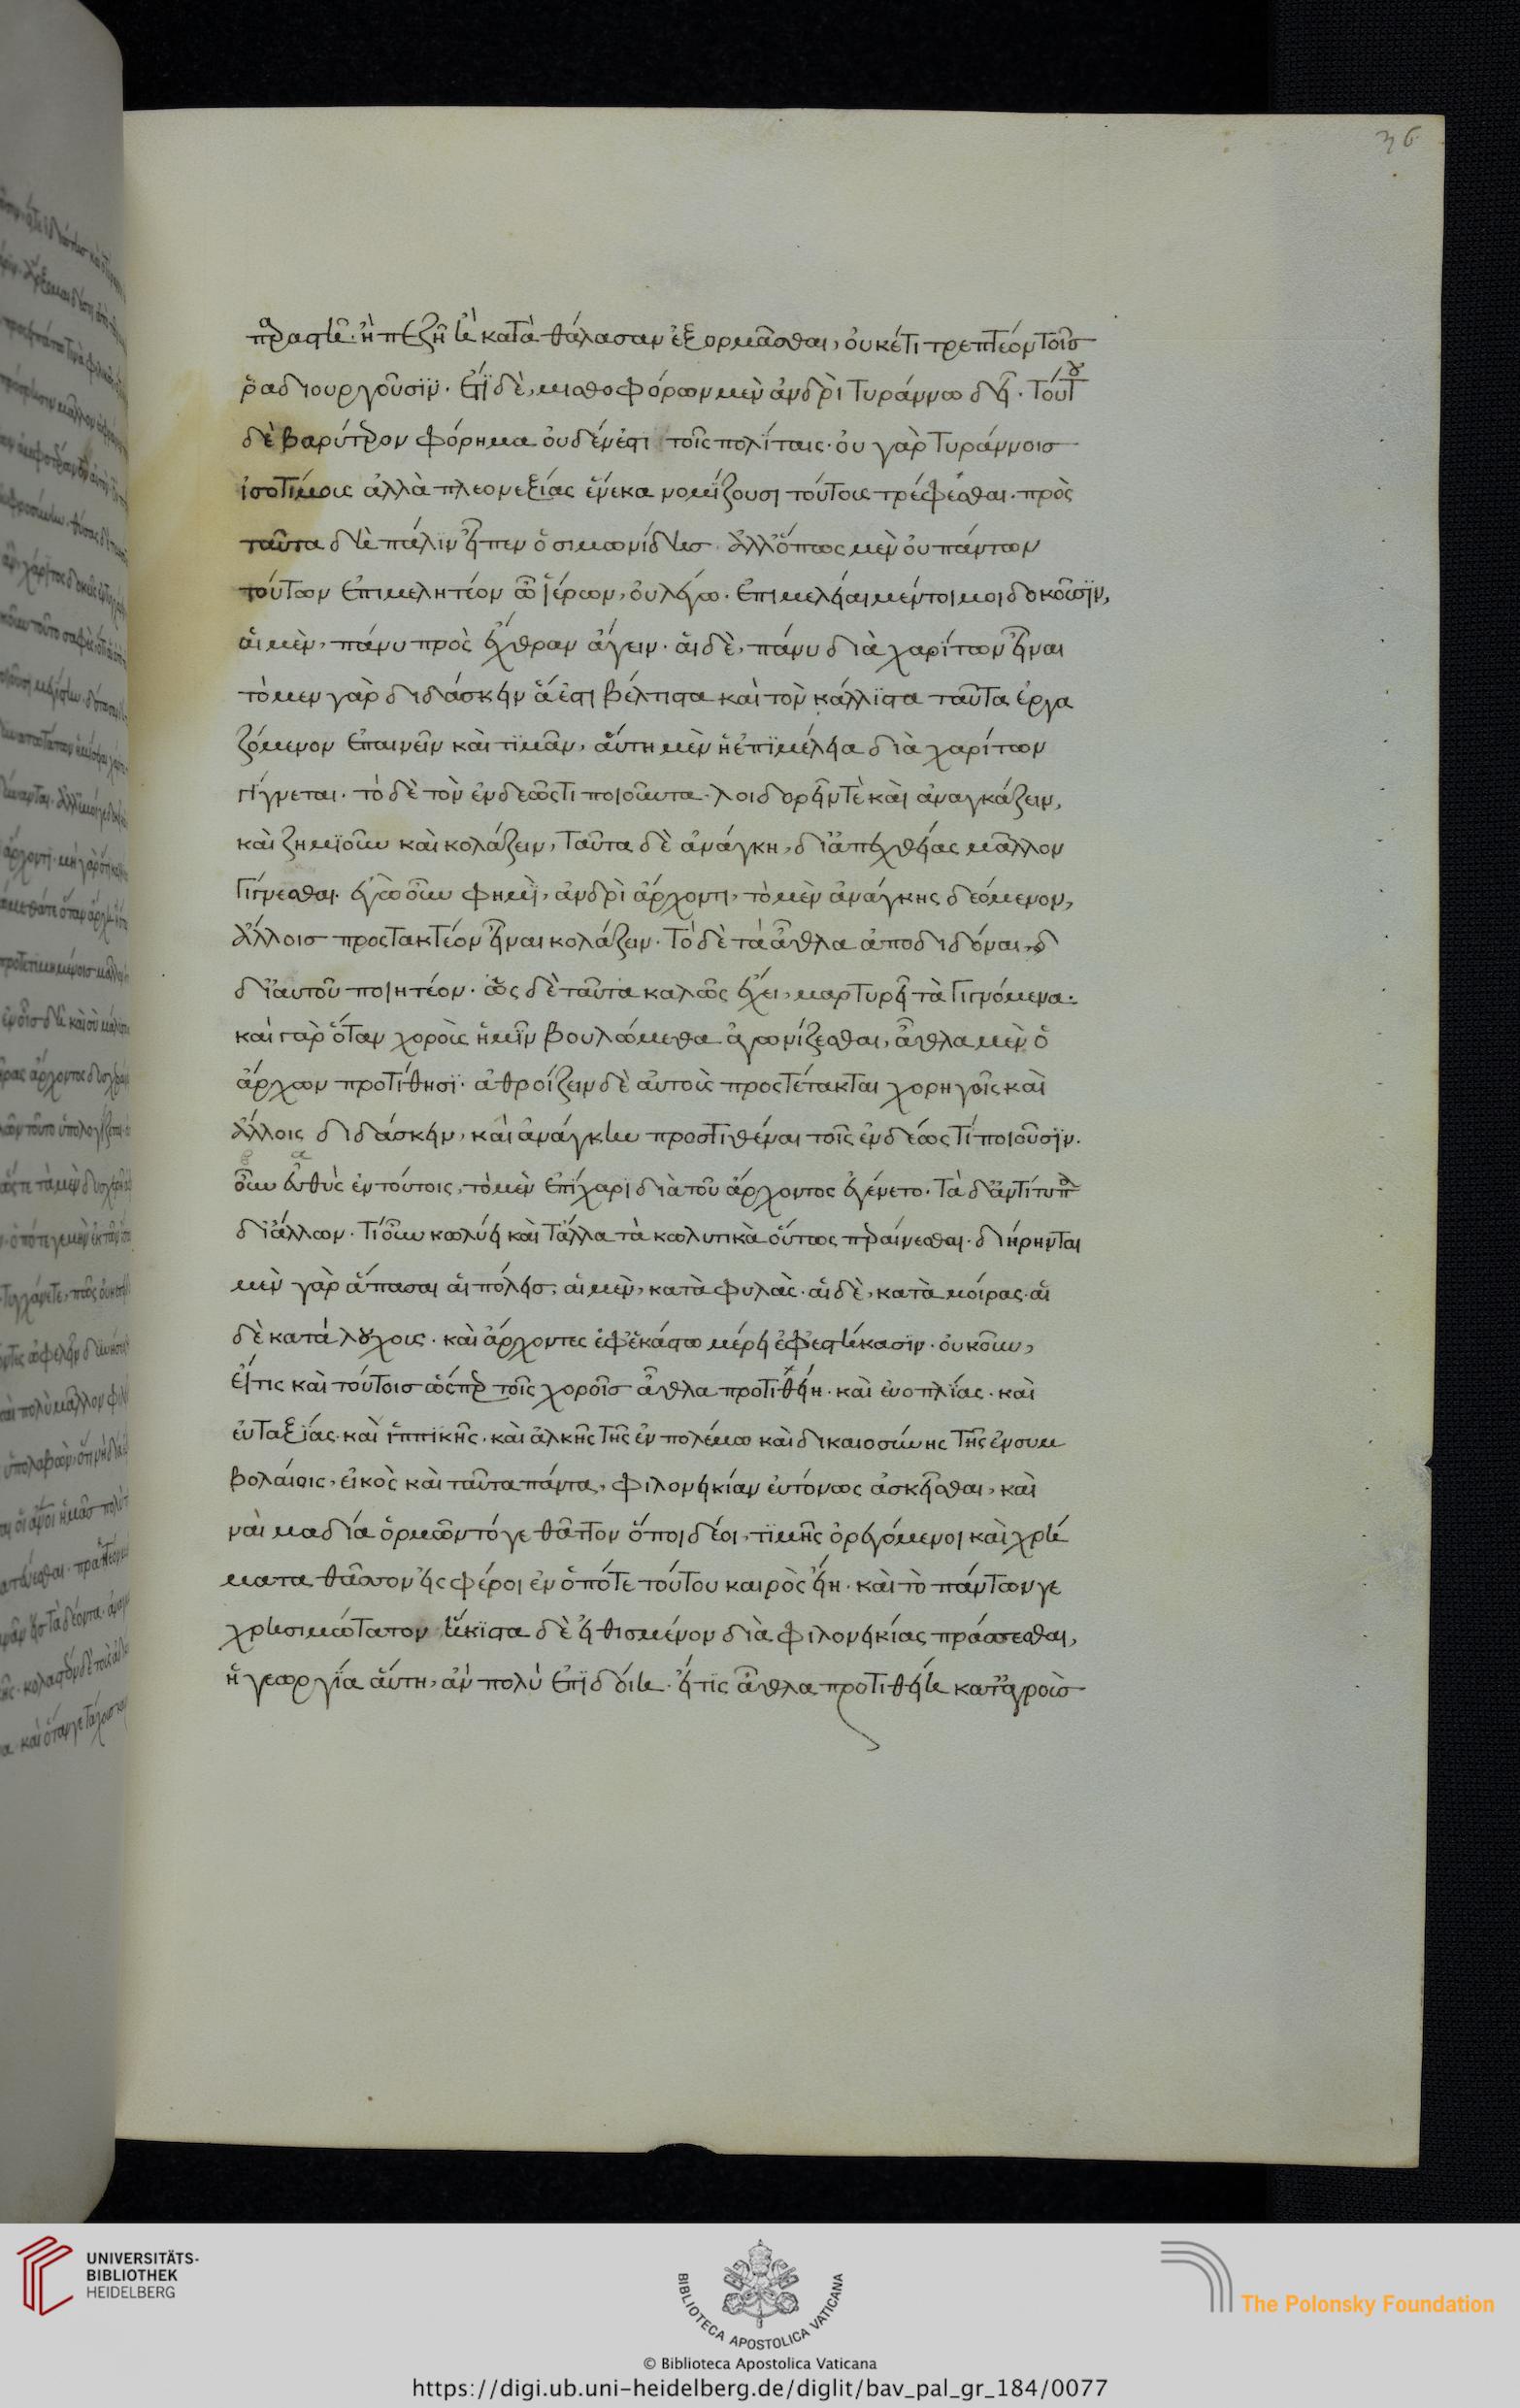 36
παραστῆ· ἢ πεζῆ ἢ κατὰ θάλασαν ἐξορμᾶσθαι, οὐκέτι τρεπτέον τοῖς
ῥαδιουργοῦσϊν. ἔτϊ δὲ, μισθοφόρων μὲν ἀνδρὶ τυράννω δεῖ. τούτου
δὲ βαρύτερον φόρημα οὐδέν ἐστι τοῖς πολίταις· οὐ γὰρ τυράννοις
ἰσοτίμοις ἀλλὰ πλεονεξίας ἕνεκα νομίζουσι τούτοις τρέφεσθαι. πρὸς
ταῦτα δὴ πάλϊν εἶπεν ὁ σιμωνίδης. ἀλλ' ὅπως μὲν οὐ πάντων
τούτων ἐπιμελητέον ὦ ἱέρων, οὐ λέγω. ἐπιμέλειαι μέντοι μοι δοκοῦσϊν,
αἱ μὲν, πάνυ πρὸς ἔχθραν ἄγειν. αἱ δὲ, πάνυ διὰ χαρίτων εἶναι
τὸ μεν γὰρ διδάσκειν ἅ ἐστι βέλτιστα καὶ τὸν κάλλϊστα ταῦτα ἐργα
ζόμενον ἐπαινεῖν καὶ τϊμᾶν, αὕτη μὲν ἡ ἐπϊμέλεια διὰ χαρίτων
γίγνεται. τὸ δὲ τὸν ἐνδεῶς τι ποιοῦντα λοιδορεῖν τὲ καὶ ἀναγκάζειν,
καὶ ζημϊοῦν καὶ κολάζειν, ταῦτα δὲ ἀνάγκη, δι' ἀπεχθείας μᾶλλον
γίγνεσθαι. ἐγὼ οὖν φημὶ, ἀνδρὶ ἄρχοντι, τὸ μὲν ἀνάγκης δεόμενον,
ἄλλοις προστακτέον εἶναι κολάζειν. τὸ δὲ τὰ ἆθλα ἀποδιδόναι, δ
δι' αυτοῦ ποιητέον. ὡς δὲ ταῦτα καλῶς ἔχει, μαρτυρεῖ τὰ γιγνόμενα.
καὶ γὰρ ὅταν χοροὺς ἡμῖν βουλώμεθα ἀγωνίζεσθαι, ἆθλα μὲν ὁ
ἄρχων προτίθησϊ. ἀθροίζειν δὲ αὐτοὺς προστέτακται χορηγοῖς καὶ
ἄλλοις διδάσκειν, καὶ ἀνάγκην προστιθέναι τοῖς ἐνδέως τί ποιοῦσϊν.
οὖν εὐθὺς ἐν τούτοις, τὸ μὲν ἐπίχαρϊ διὰ τοῦ ἄρχοντος ἐγένετο. τὰ δ' ἀντίτυπα
δι' ἄλλων. τί οὖν κωλύει καὶ τἄλλα τὰ κωλυτικὰ οὕτως περαίνεσθαι. διήρηνται
μὲν γὰρ ἅπασαι αἱ πόλεις, αἱ μὲν, κατὰ φυλὰς. αἱ δὲ, κατὰ μοίρας. αἱ
δὲ κατά λόχοις. καὶ ἄρχοντες ἐφ' ἑκάστω μέρει ἐφεστήκασϊν. οὐκοῦν,
εἴ τις καὶ τούτοις ὥσπερ τοῖς χοροῖς ἆθλα προτιθείη. καὶ ἐυοπλίας. καὶ
ἐυταξίας. καὶ ἱππϊκῆς. καὶ ἀλκῆς τῆς ἐν πολέμω καὶ δικαιοσύνης τῆς ἐν συμ
βολαίοις, εἰκὸς καὶ ταῦτα πάντα, φιλονεικίαν ἐυτόνως ἀσκεῖσθαι, καὶ
ναὶ μα δία ὁρμῶντό γε θᾶττον ὅποι δέοι, τϊμῆς ὀρεγόμενοι καὶ χρή
ματα θᾶσσον εἰς φέροι ἐν ὁπότε τούτου καιρὸς εἴη. καὶ τὸ πάντων γε
χρησιμώτατον ἥκϊστα δὲ εἰθισμένον διὰ φιλονεικίας πράσσεσθαι,
ἡ γεωργΐα αὕτη, ἀν πολὺ ἐπϊδοίη. εἴ τϊς ἆθλα προτιθείη κατ' ἀγροὺς
UNIVERSITÄTS-
BIBLIOTHEK
HEIDELBERG
BIBLIOTECA APOSTOLICA VATICANA
The Polonsky Foundation
© Biblioteca Apostolica Vaticana
https://digi.ub.uni-heidelberg.de/diglit/bav_pal_gr_184/0077